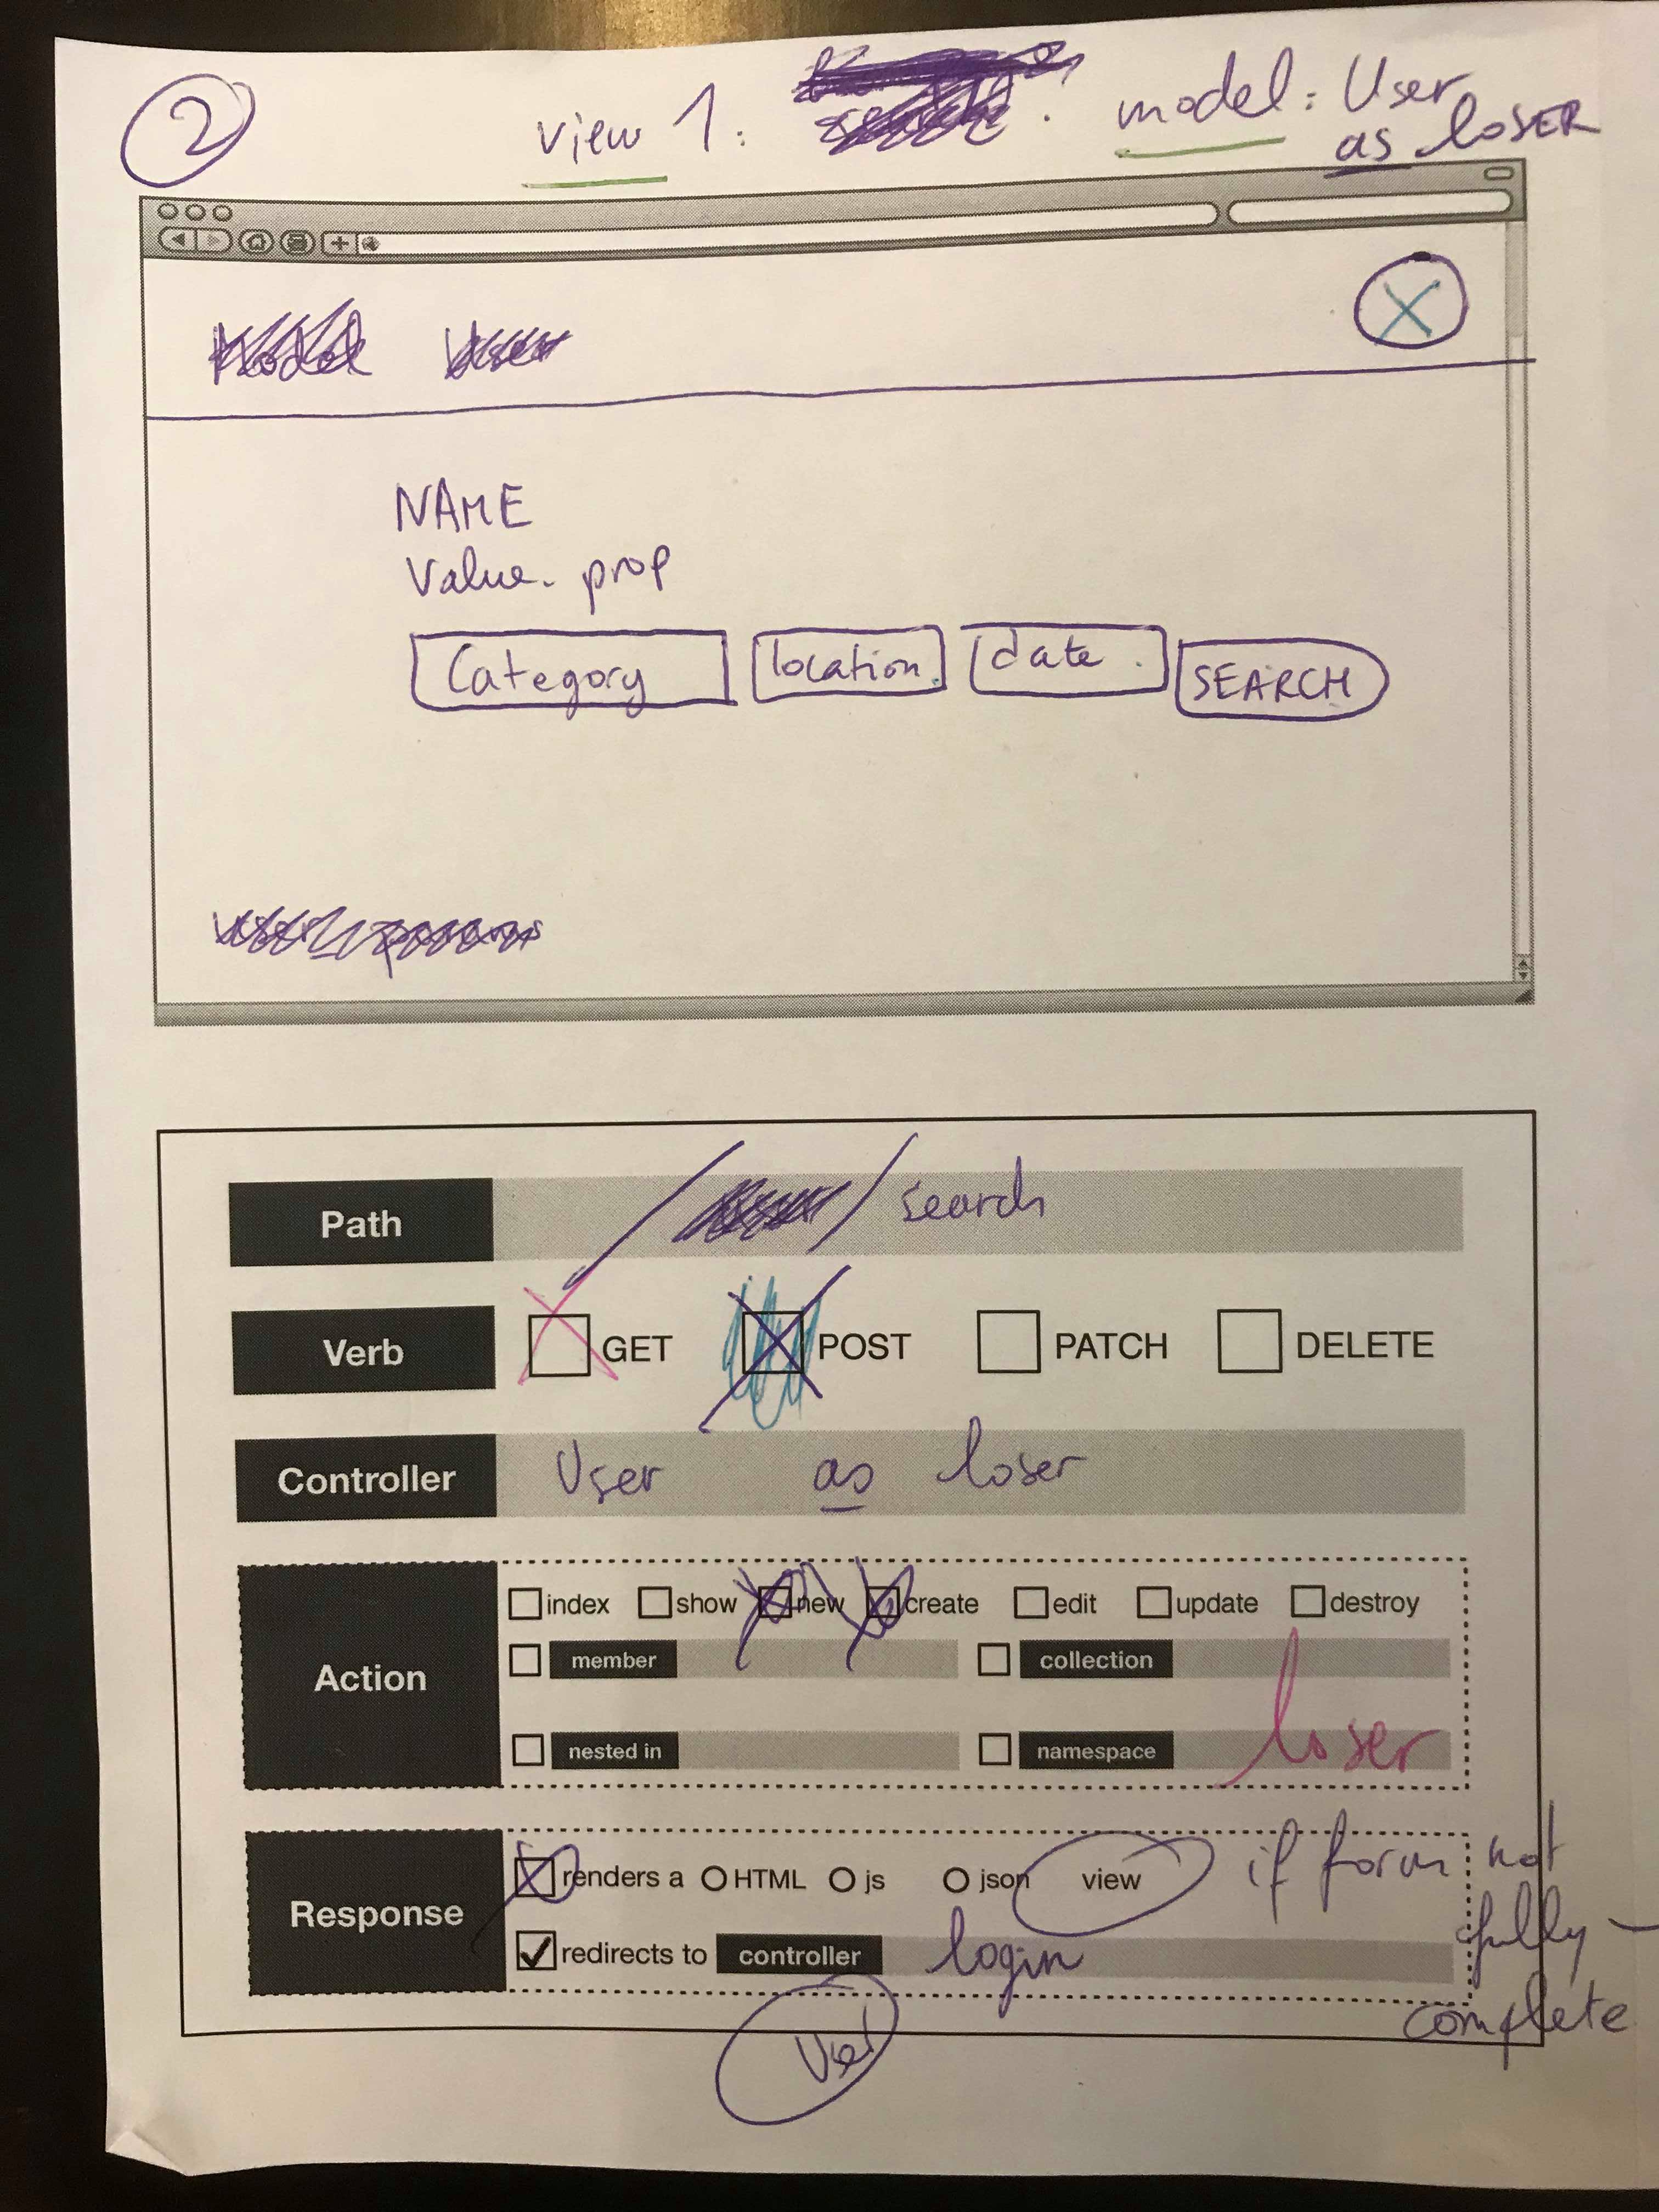 2
view 1: model: User
as loSER
X
NAME
Value. prop
Category location date SEARCH
Path / / search
Verb GET POST PATCH DELETE
Controller User as loser
Action index show new create edit update destroy
member collection
nested in namespace loser
Response renders a HTML js json view if form not
fully -
redirects to controller login
complete
User